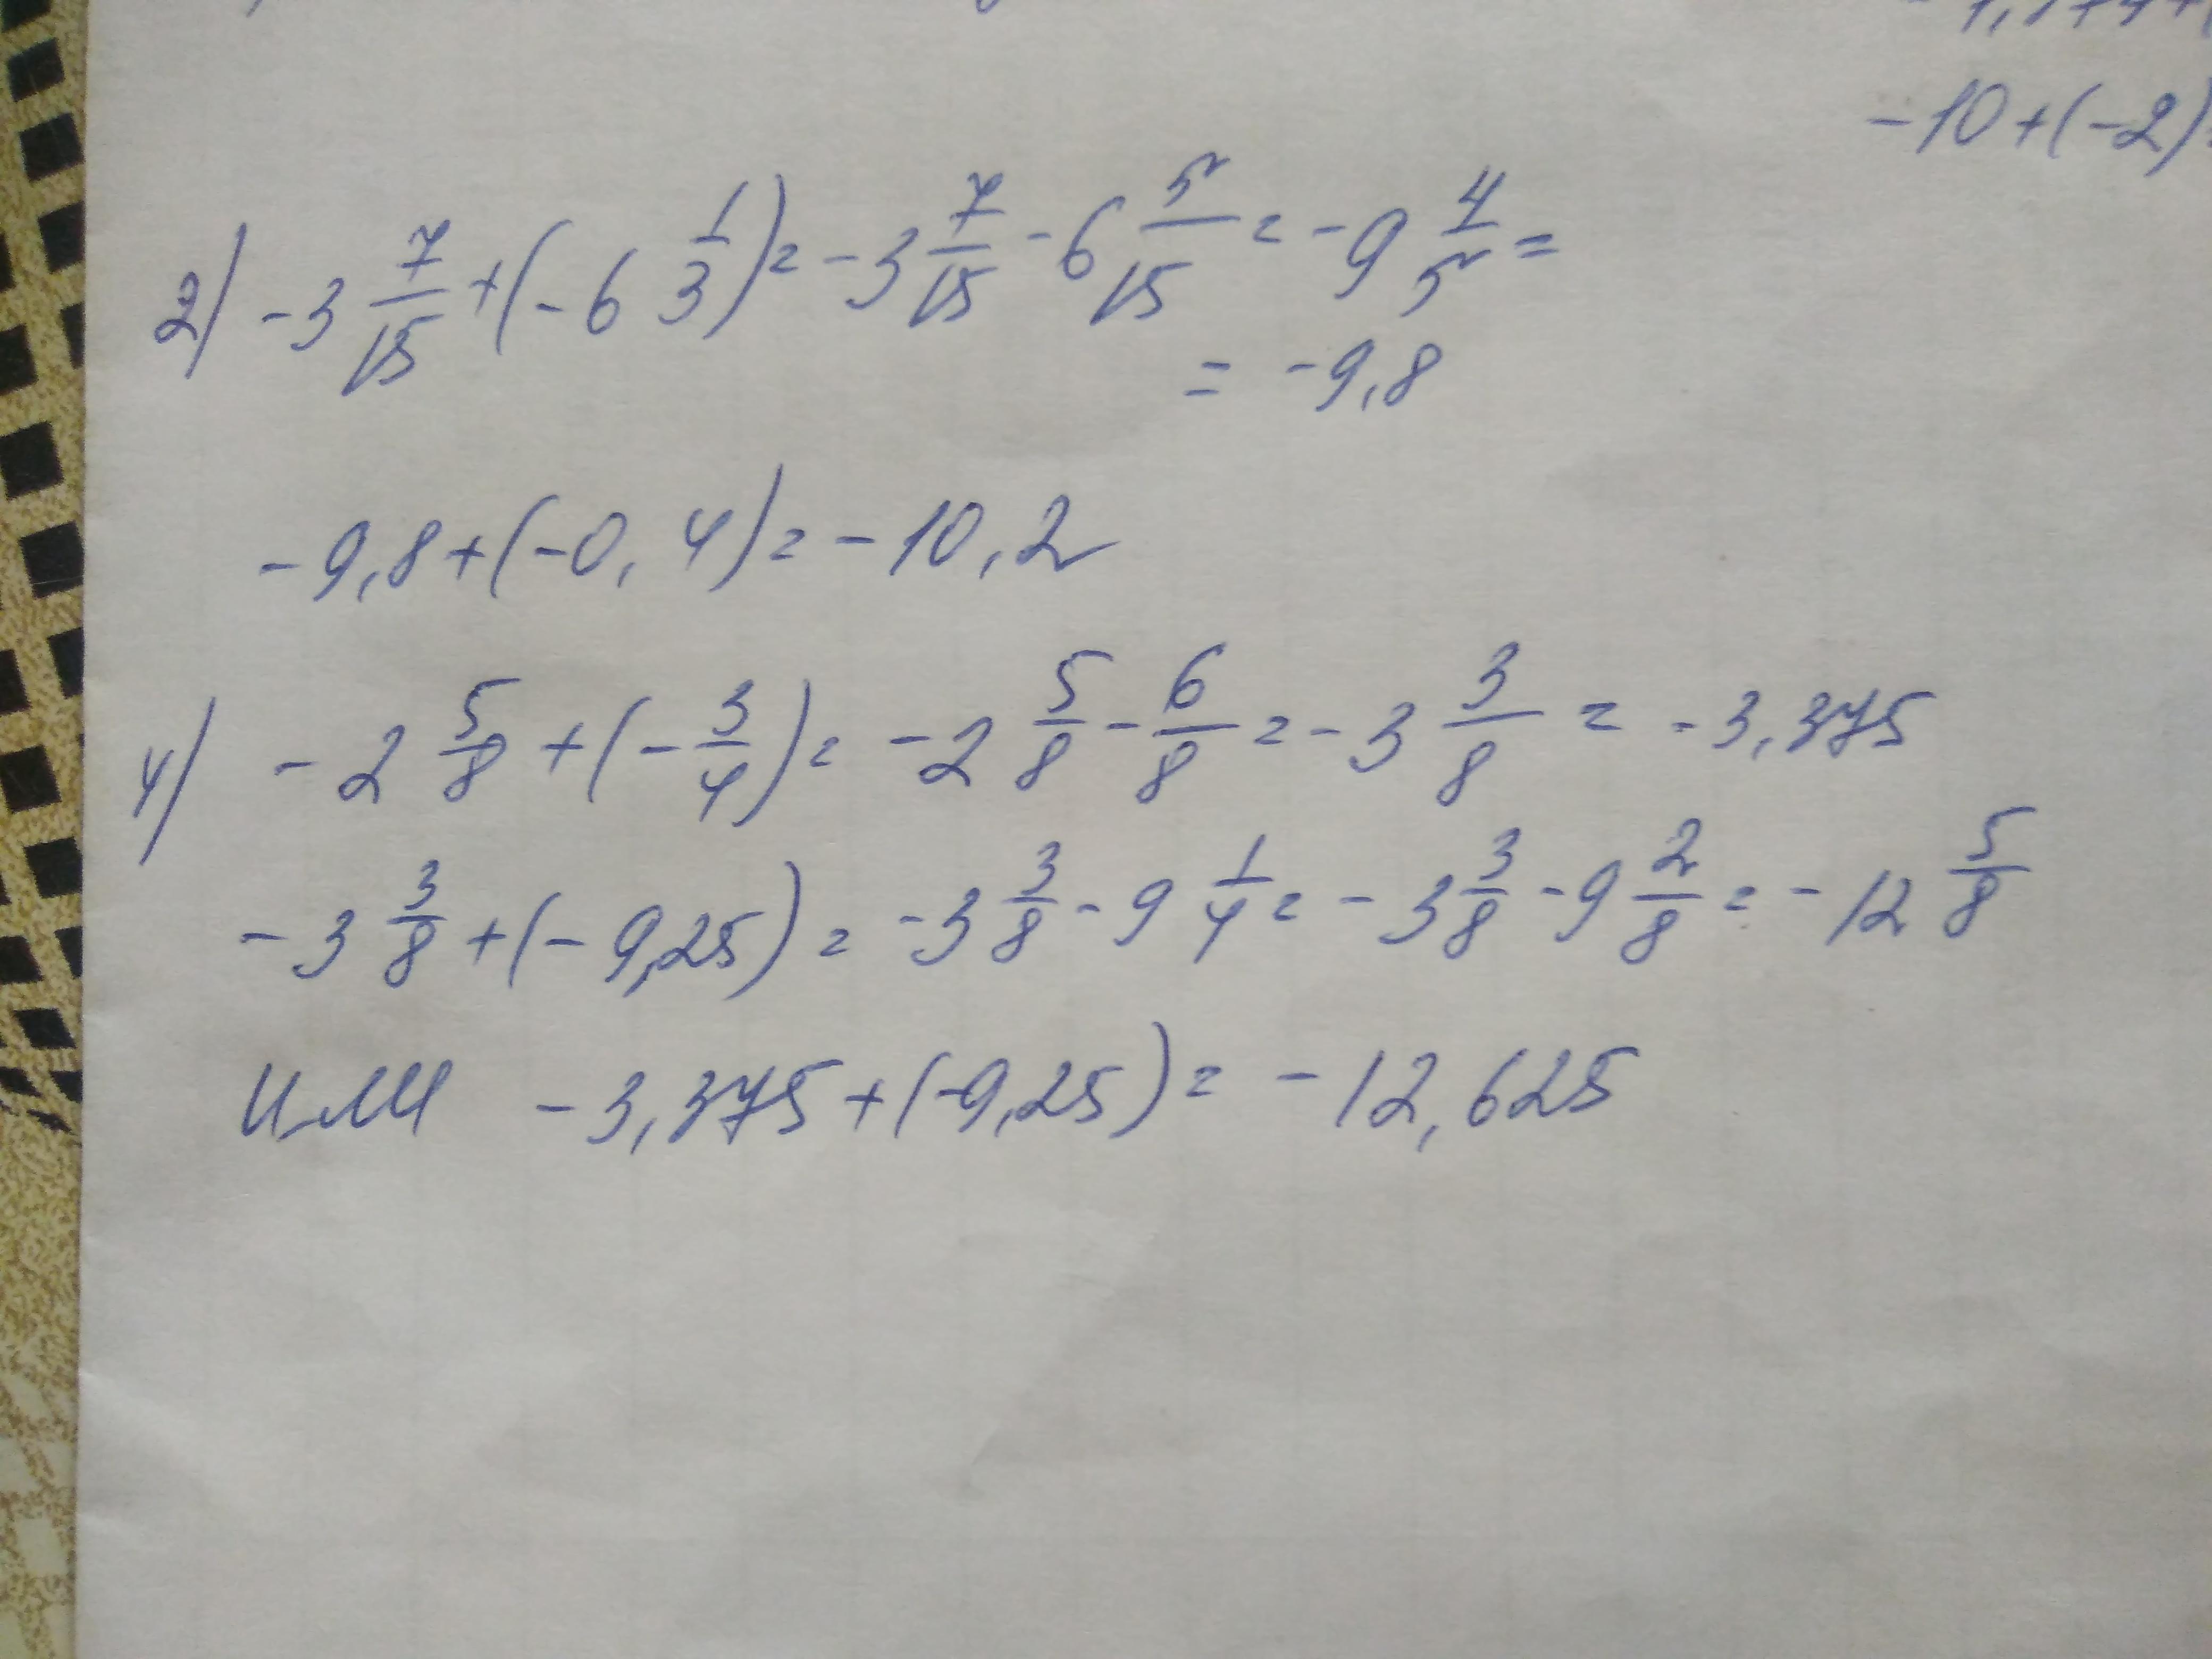 -10+(-2)
2) -3 7/15 + (-6 1/3) = -3 7/15 - 6 5/15 = -9 4/5 =
= -9,8
-9,8+(-0,4) = -10,2
4) -2 5/8 + (-3/4) = -2 5/8 - 6/8 = -3 3/8 = -3,375
-3 3/8 + (-9,25) = -3 3/8 - 9 1/4 = -3 3/8 - 9 2/8 = -12 5/8
или -3,375+(-9,25) = -12,625